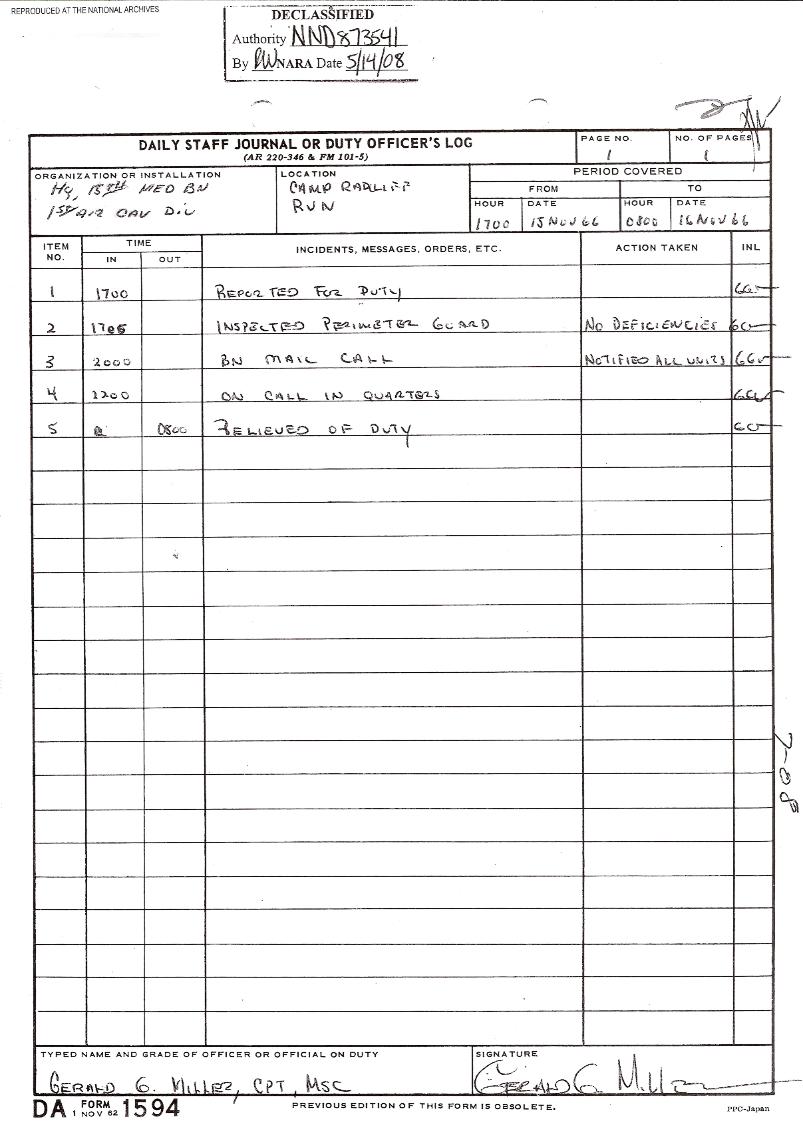 REPRODUCED AT THE NATIONAL ARCHIVES
DECLASSIFIED
Authority NND873541
By RW NARA Date 5/14/08
DAILY STAFF JOURNAL OR DUTY OFFICER'S LOG
(AR 220-346 & FM 101-5)
PAGE NO.
1
NO. OF PAGES
1
ORGANIZATION OR INSTALLATION
Hq, 15th MED BN
1st AIR CAV DIV
LOCATION
CAMP RADLIFF
RVN
PERIOD COVERED
FROM TO
HOUR DATE HOUR DATE
1700 15 NOV 66 0800 16 NOV 66
ITEM NO. TIME INCIDENTS, MESSAGES, ORDERS, ETC. ACTION TAKEN INL
IN OUT
1 1700 REPORTED FOR DUTY
2 1705 INSPECTED PERIMETER GUARD NO DEFICIENCIES
3 2000 BN MAIL CALL NOTIFIED ALL UNITS
4 2200 ON CALL IN QUARTERS
5 0800 RELIEVED OF DUTY
7-08
TYPED NAME AND GRADE OF OFFICER OR OFFICIAL ON DUTY
GERALD G. MILLER, CPT, MSC
SIGNATURE
GERALD G Miller
DA FORM 1594
1 NOV 62
PREVIOUS EDITION OF THIS FORM IS OBSOLETE.
PPC-Japan